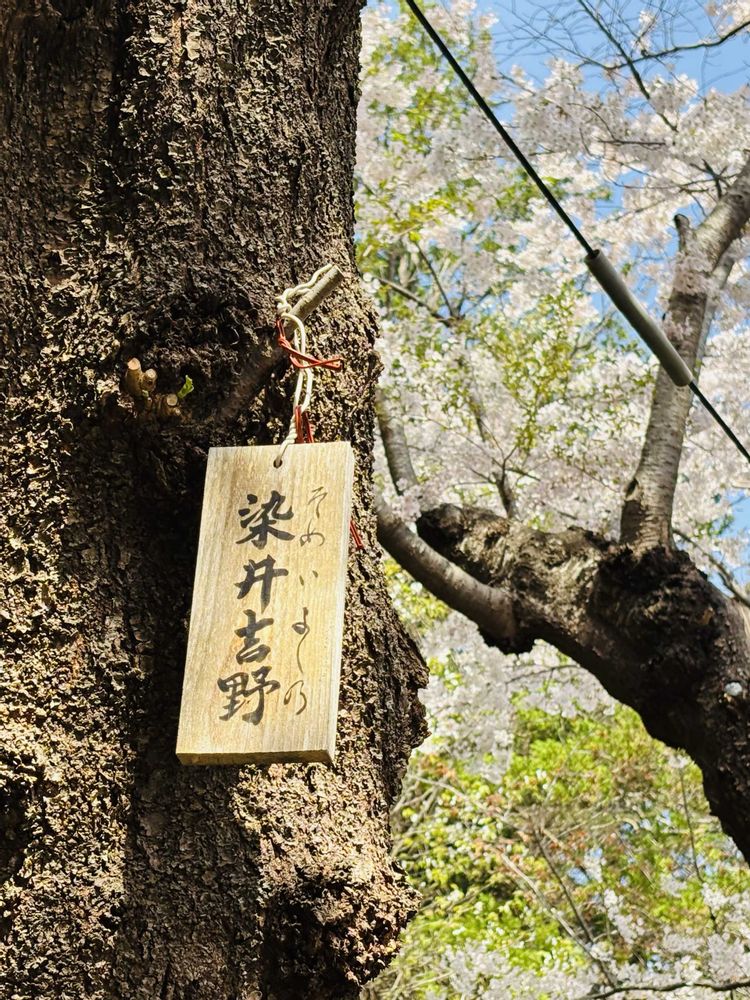 そめいよしの
染井吉野